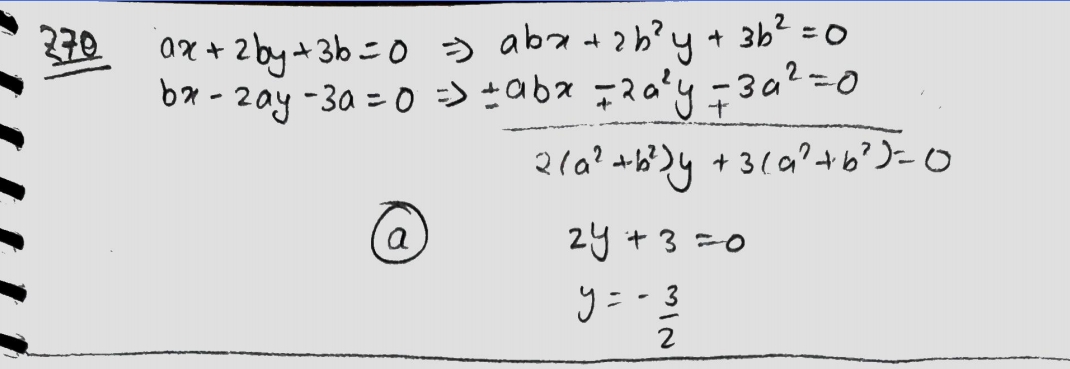 370 ax + 2by + 3b = 0 ⇒ abx + 2b²y + 3b² = 0
bx - 2ay - 3a = 0 ⇒ ±abx ∓2a²y ∓3a² = 0
2(a² + b²)y + 3(a² + b²) = 0
(a) 2y + 3 = 0
y = -3/2